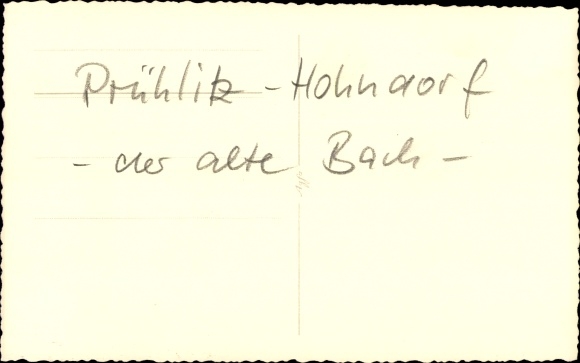 Prühlitz - Hohndorf
- der alte Bach -